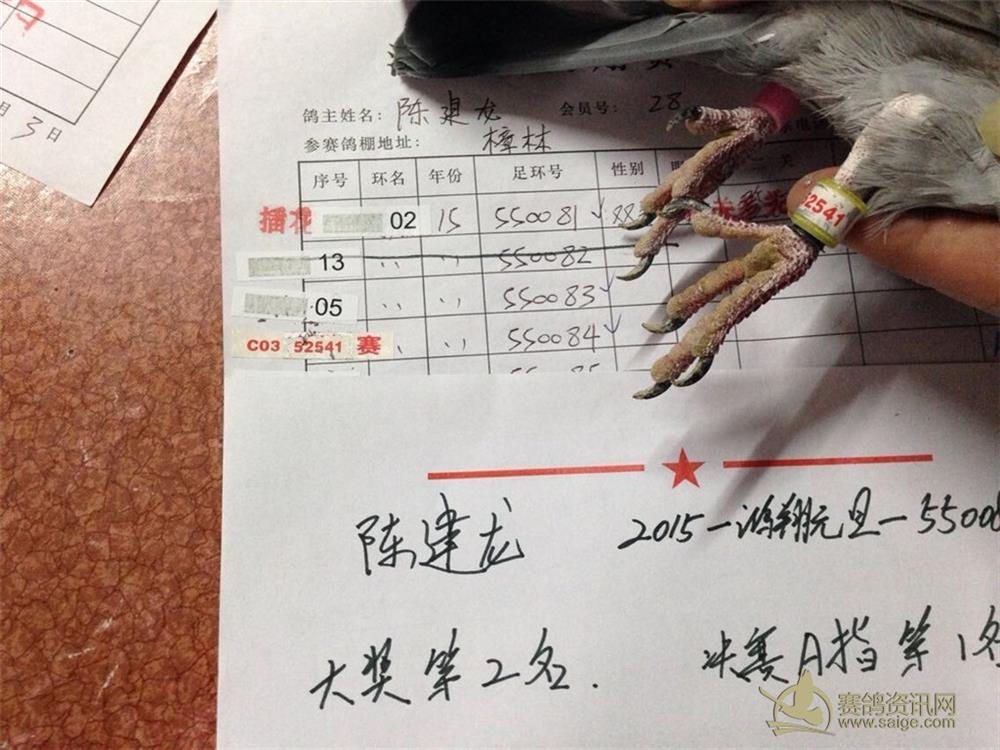 月 3 日
鸽主姓名: 陈建龙 会员号: 28
参赛鸽棚地址: 樟林
序号 环名 年份 足环号 性别
插花 02 15 550081 ✓ 88
13 〃 〃 550082
05 〃 〃 550083 ✓
C03 52541 赛 〃 〃 550084 ✓
52541
陈建龙 2015-鸿翔元旦-5500
大奖第2名. 决赛A指第1名
赛鸽资讯网
www.saige.com